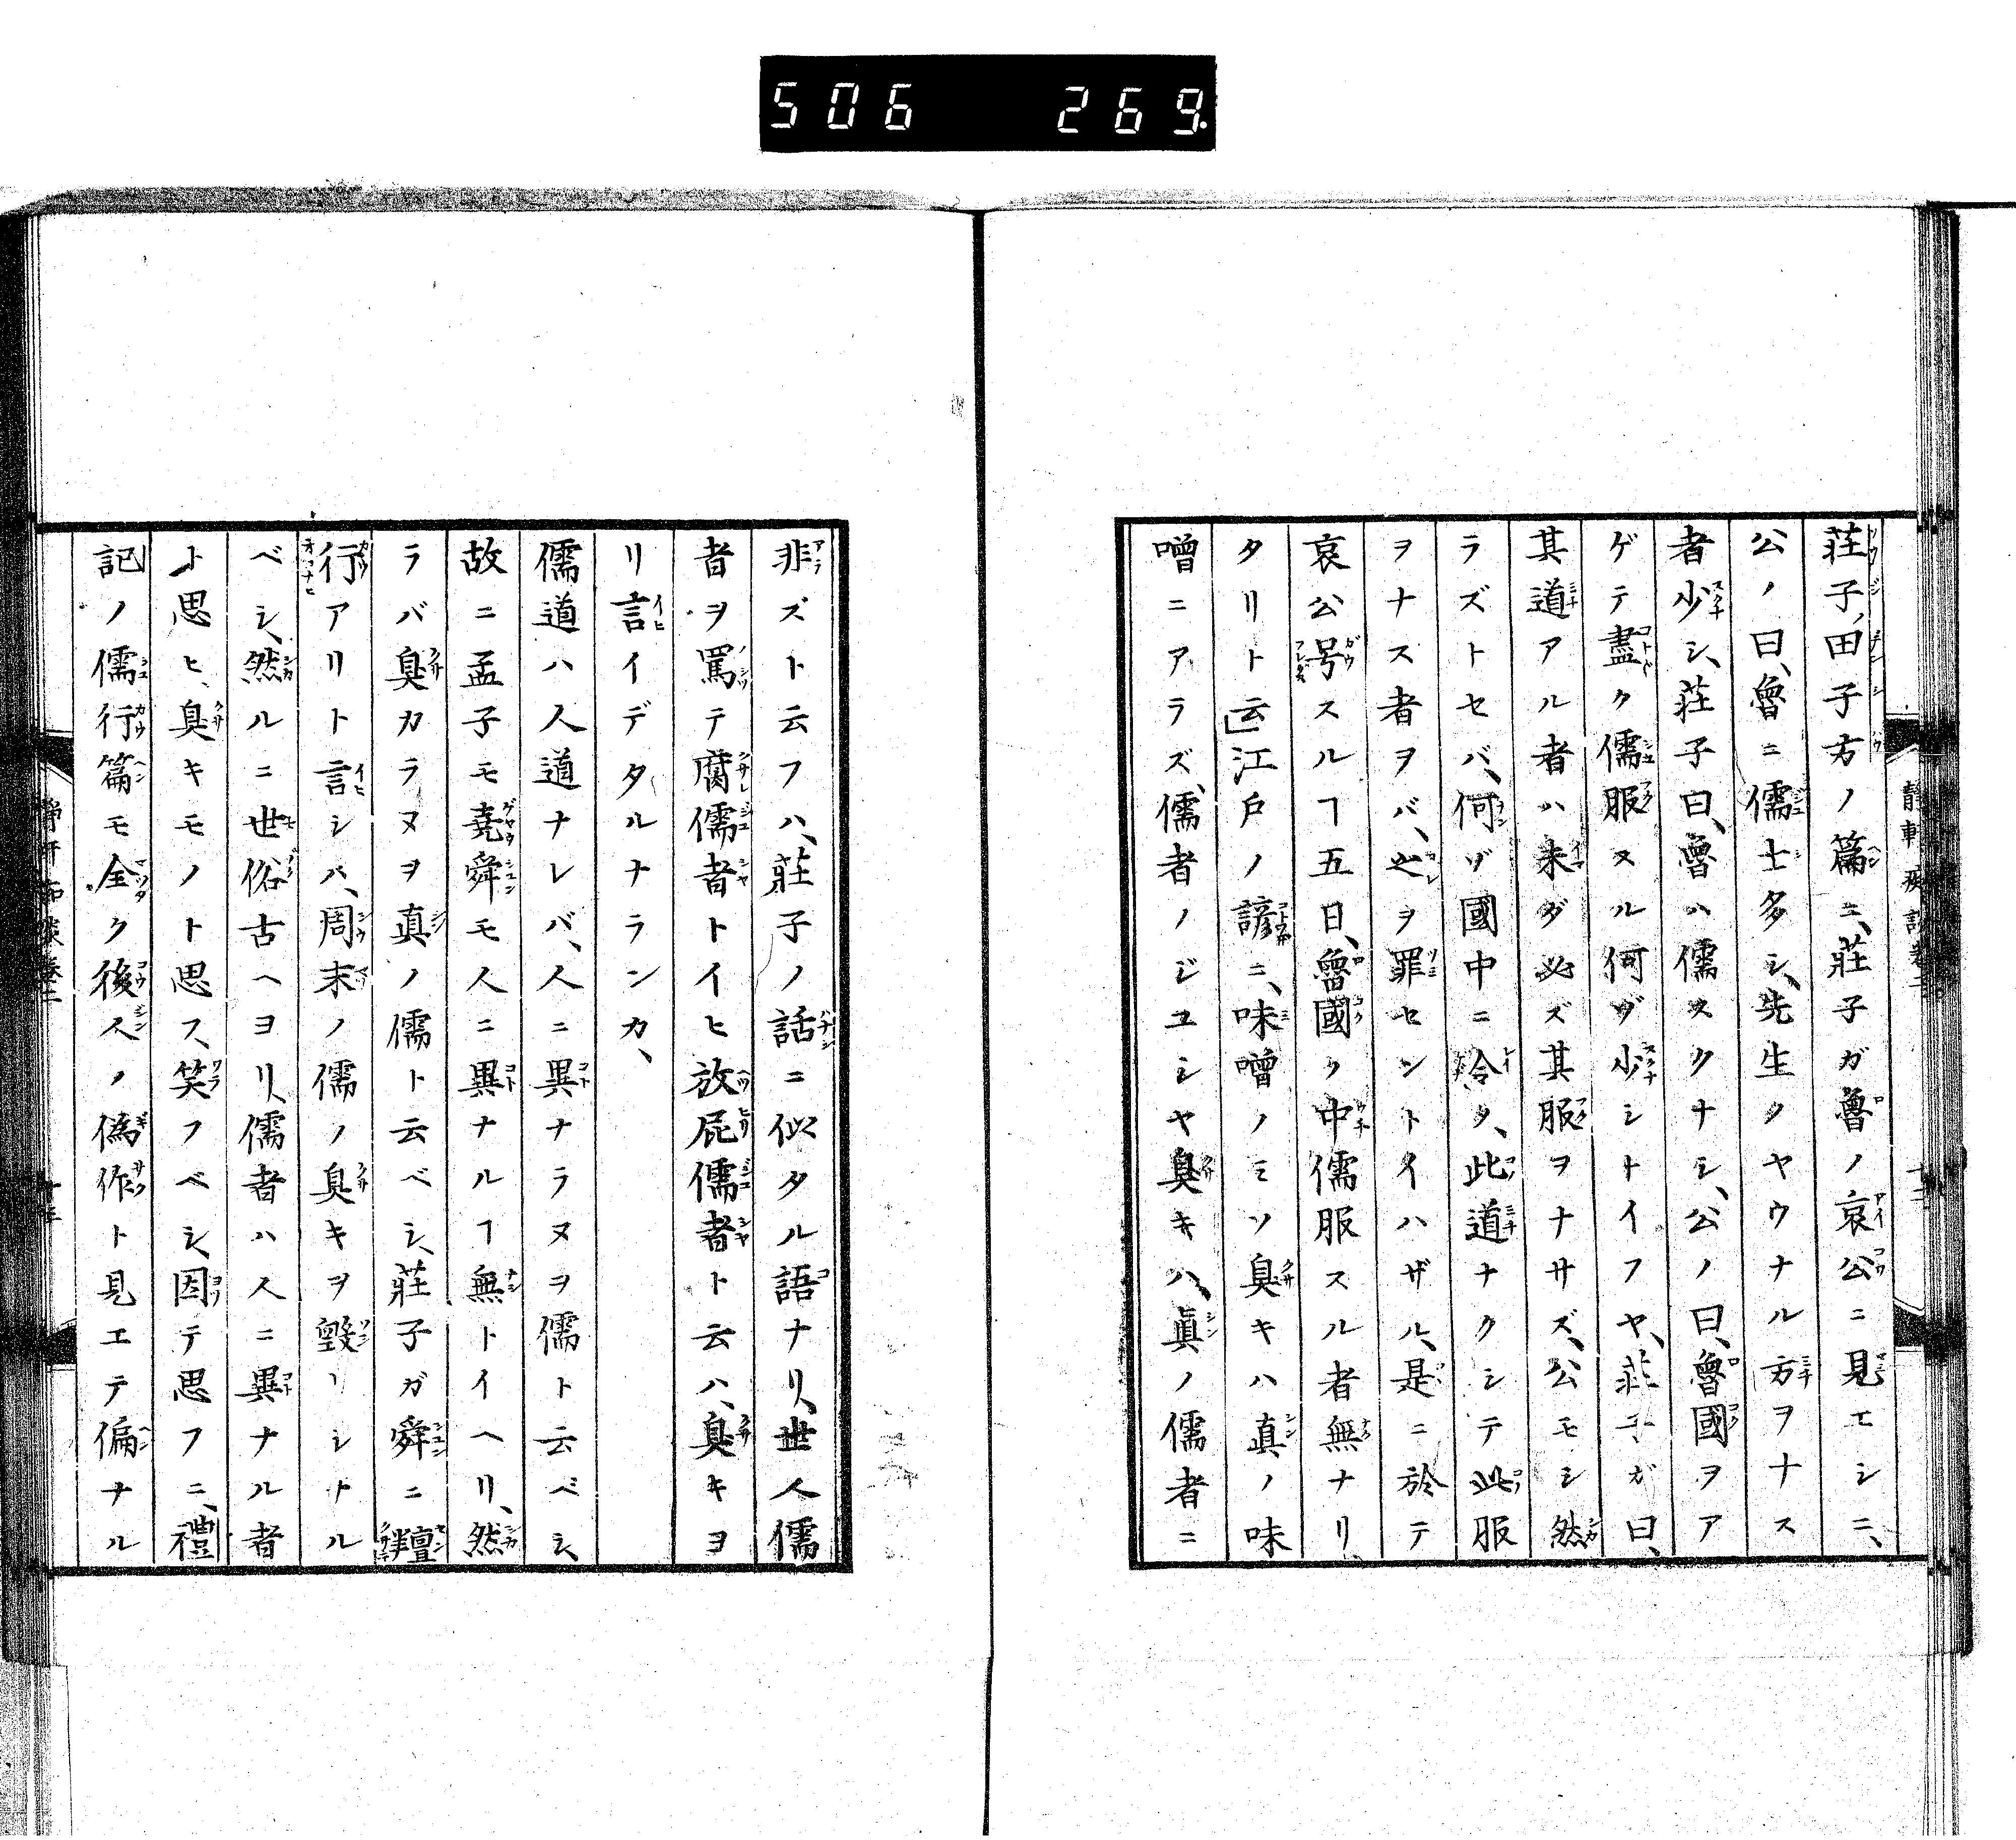 506 269
莊子、田子方ノ篇ニ、莊子ガ魯ノ哀公ニ見エシニ、
公ノ曰、魯ニ儒士多シ、先生ノヤウナル方ヲナス
者少シ、莊子曰、魯ハ儒スクナシ、公ノ曰、魯國ヲア
ゲテ盡ク儒服スル何ゾ少シトイフヤ、莊子ガ曰、
其道アル者ハ未ダ必ズ其服ヲナサズ、公モシ然
ラズトセバ、何ゾ國中ニ令シ、此道ナクシテ此服
ヲナス者ヲバ、之ヲ罪セントイハザル、是ニ於テ
哀公号スルヿ五日、魯國ノ中儒服スル者無ナリ
タリト云」江戸ノ諺ニ、味噌ノミソ臭キハ真ノ味
噌ニアラズ、儒者ノジユシヤ臭キハ、眞ノ儒者ニ
非ズト云フハ、莊子ノ話ニ似タル語ナリ、世人儒
者ヲ罵テ腐儒者トイヒ放屁儒者ト云ハ、臭キヨ
リ言イデタルナランカ、
儒道ハ人道ナレバ、人ニ異ナラヌヲ儒ト云ベシ、
故ニ孟子モ堯舜モ人ニ異ナルヿ無トイヘリ、然
ラバ臭カラヌヲ真ノ儒ト云ベシ、莊子ガ舜ニ羶
行アリト言シハ、周末ノ儒ノ臭キヲ毀リシナル
ベシ、然ルニ世俗古ヘヨリ、儒者ハ人ニ異ナル者
ト思ヒ、臭キモノト思ス、笑フベシ、因テ思フニ、禮
記ノ儒行篇モ全ク後人ノ偽作ト見エテ偏ナル